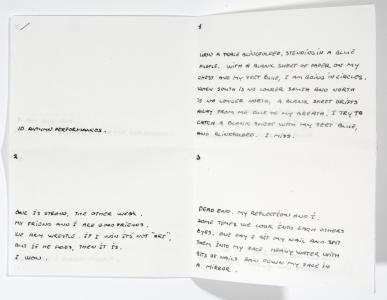 10 AUTUMN PERFORMANCES.
1
UPON A TABLE BLINDFOLDED, STANDING IN A BLUE
PUDDLE. WITH A BLANK SHEET OF PAPER ON MY
CHEST AND MY FEET BLUE, I AM GOING IN CIRCLES.
WHEN SOUTH IS NO LONGER SOUTH AND NORTH
IS NO LONGER NORTH, A BLANK SHEET DRIFTS
AWAY FROM ME DUE TO MY BREATH. I TRY TO
CATCH A BLANK SHEET WITH MY FEET BLUE,
AND BLINDFOLDED. I MISS.
2
ONE IS STRONG, THE OTHER WEAK.
MY FRIEND AND I ARE GOOD FRIENDS.
WE ARM WRESTLE. IF I WIN IT'S NOT "ART",
BUT IF HE DOES, THEN IT IS.
I WON.
3
DEAD END. MY REFLECTION AND I.
SOME TIMES WE LOOK INTO EACH OTHERS
EYES. ONE DAY I BIT MY NAIL AND SPIT
THEM INTO MY FACE. HEAVY WATER WITH
BITS OF NAILS RAN DOWN MY FACE IN
A MIRROR.